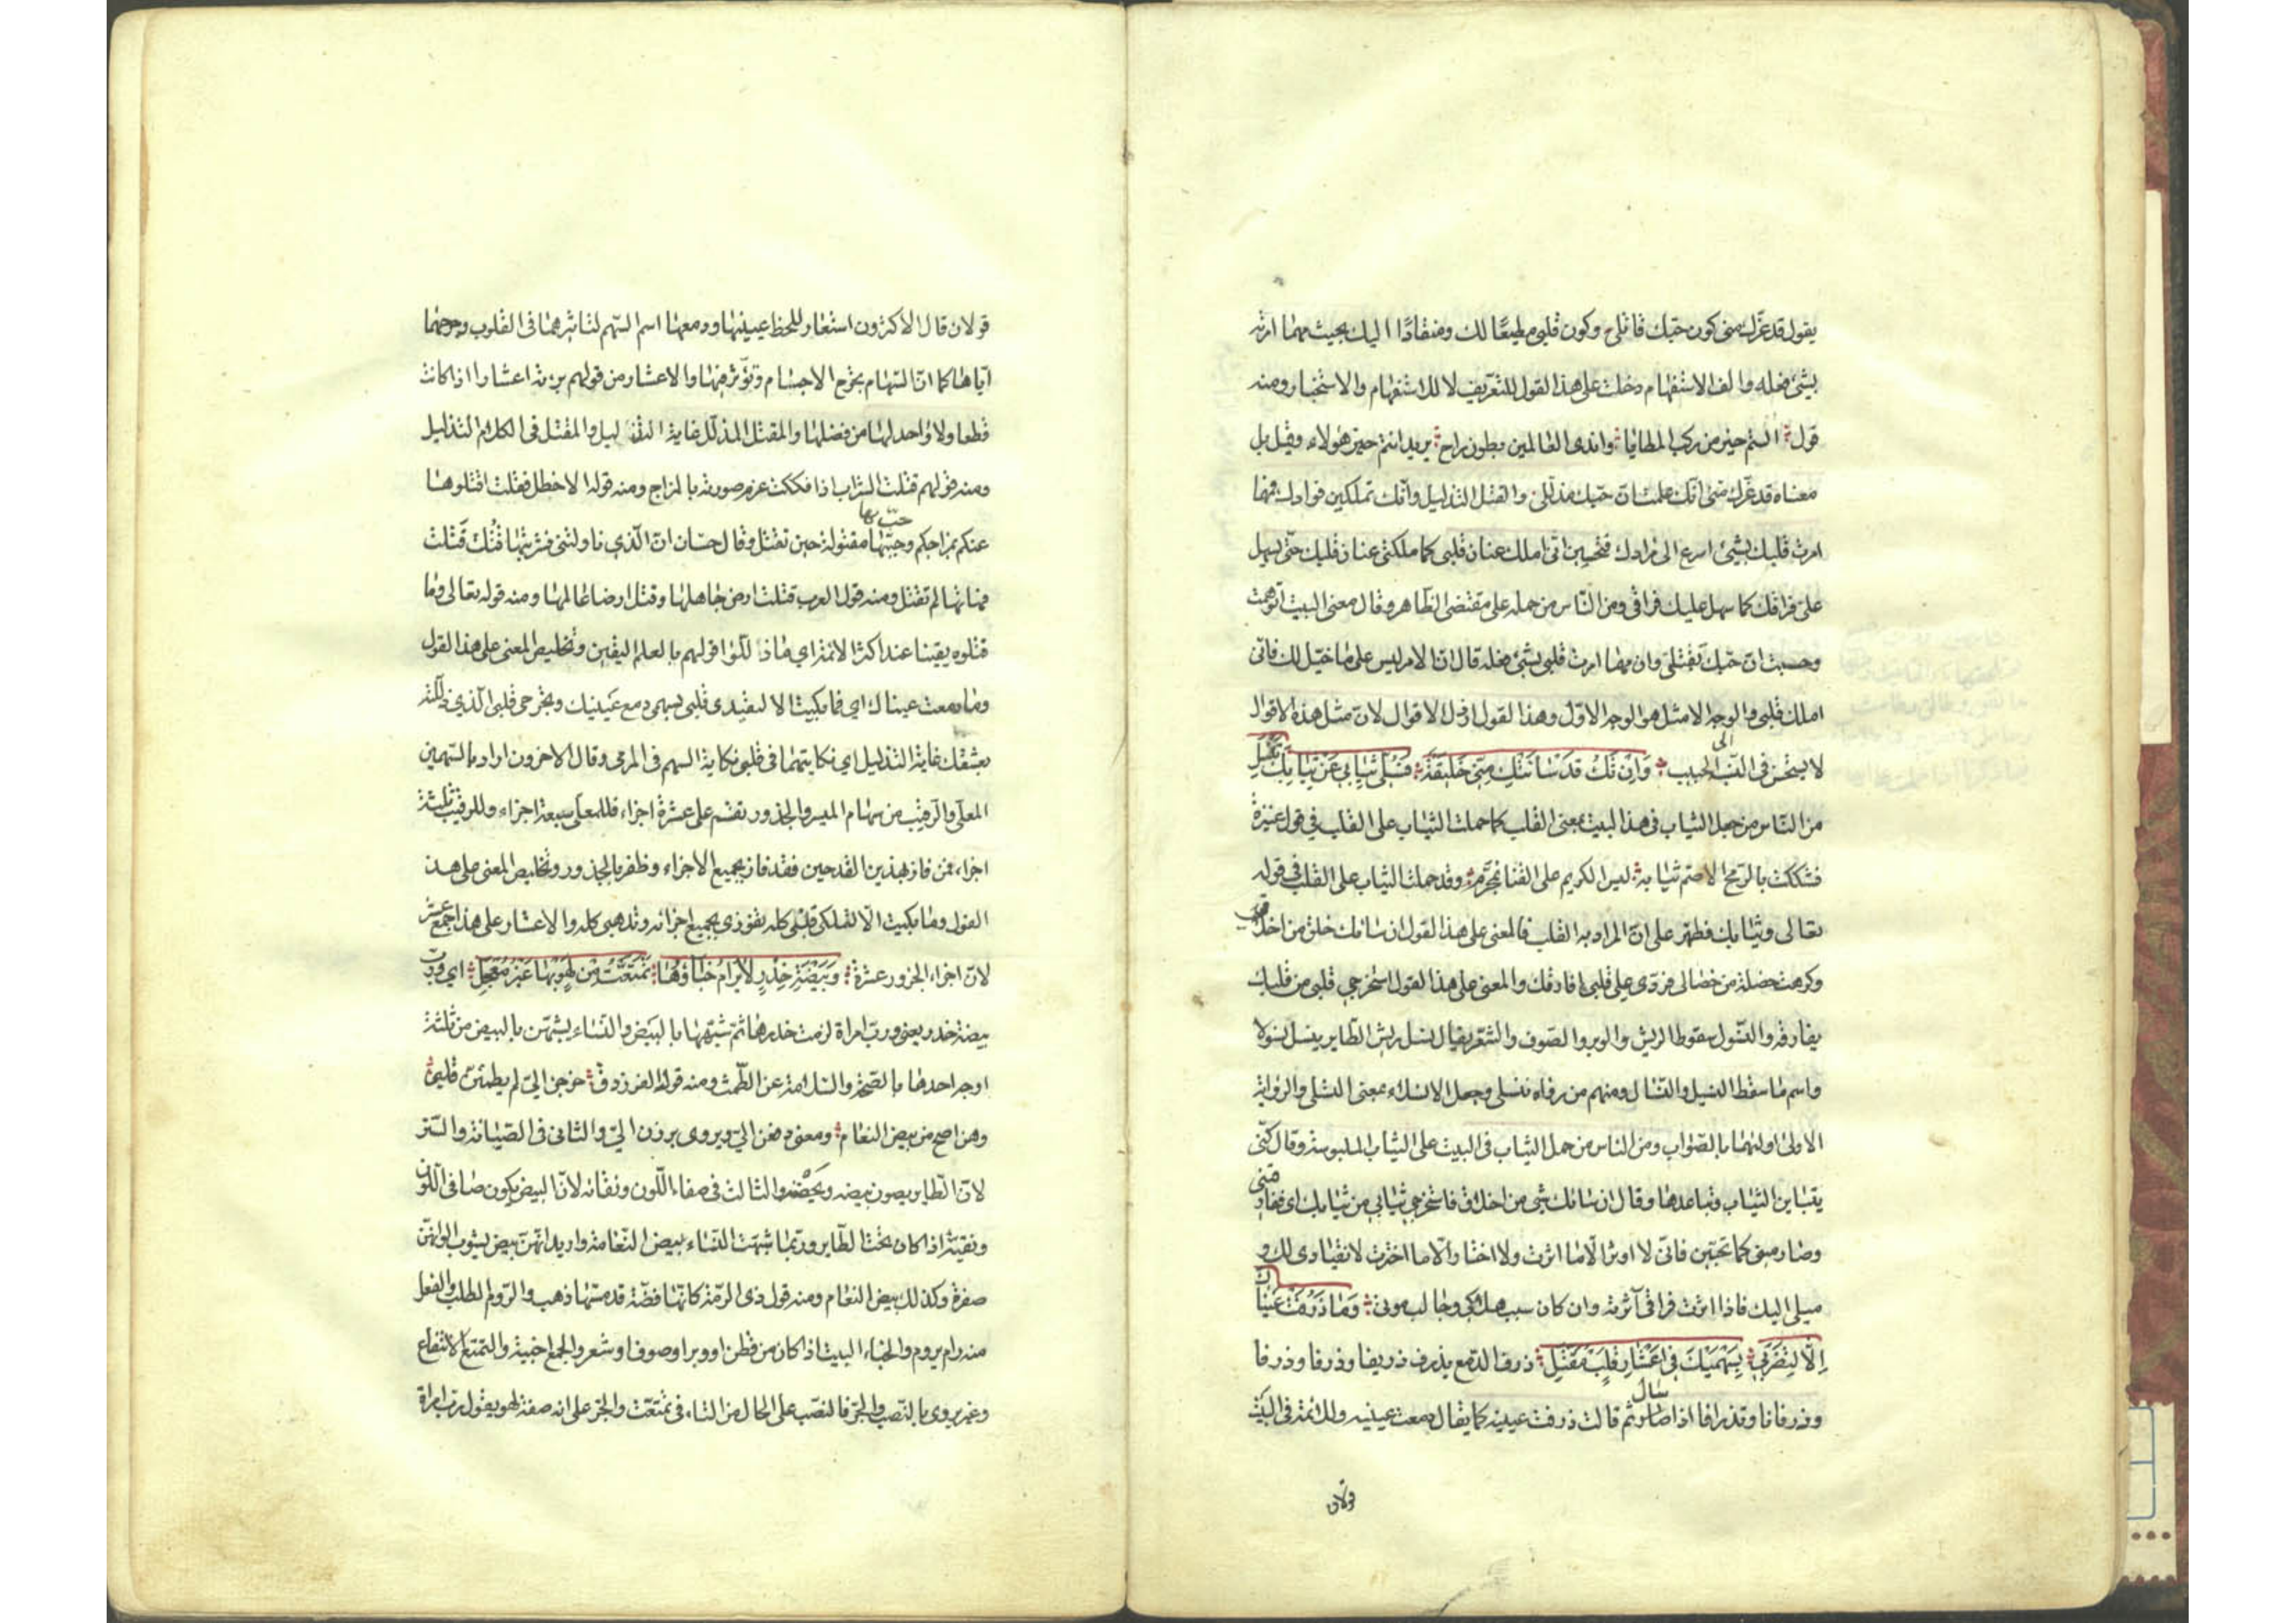 يقول قد غرّك منى كون حبّك قاتلى وكون قلبى مطيعًا لك ومنقادًا اليك بحيث مهما امرته
بشئ فعله والف الاستفهام دخلت على هذا القول للتقرير لا للاستفهام والاستخبار ومنه
قول الستم خير من ركب المطايا واندى العالمين بطون راح يريد انتم خير هؤلاء وقيل بل
معناه قد غرّك منى انّك علمت انّ حبّك مذلّلى والقتل التذليل وانّك تملكين فوادك فمهما
امرت قلبك بشئ اسرع الى مرادك فتحسبين انّى املك عنان قلبى كما ملكتى عنان قلبك حتّى يسهل
علىّ فراقك كما سهل عليك فراقى ومن النّاس من حمله على مقتضى الظّاهر وقال معنى البيت اتوهمت
وحسبت انّ حبّك يقتلنى وان مهما امرت قلبى بشئ فعله قال انّ الامر ليس على ما خيّل لك فانّى
املك قلبى والوجه الامثل هو الوجه الاوّل وهذا القول ارذل الاقوال لانّ مثل هذه الاقوال
لا يستحسن فى النسب الى الحبيب وَاِنْ تَكُ قَدْ سَائَتْكِ مِنّى خَليقَةٌ فَسُلّى ثِيابى عَنْ ثِيابِكِ تَنْسُلِ
من النّاس من جعل الثياب فى هذا البيت بمعنى القلب كما حملت الثياب على القلب فى قول عنترة
فشككت بالرّمح الاصمّ ثيابه ليس الكريم على القنا بمحرّم وقد حملت الثياب على القلب فى قوله
تعالى وثيابك فطهر على انّ المراد به القلب فالمعنى على هذا القول ان سائك خلق من اخلاقى
وكرهت خصلة من خصالى فردّى علىّ قلبى افارقك والمعنى على هذا القول استخرجى قلبى من قلبك
يفارقه والنسول سقوط الريش والوبر والصوف والشعر يقال نسل ريش الطاير ينسل نسولا
واسم ما سقط النسيل والنسال ومنهم من رواه تنسلى وجعل الانسلاء بمعنى التسلى والرواية
الاولى اولهما بالصواب ومن الناس من حمل الثياب فى البيت على الثياب الملبوسة وقال كنّى
بتباين الثياب وتباعدها وقال ان سائك شى من اخلاقى فاستخرجى ثيابى من ثيابك اى ففارقينى
وصارمينى كما تحبّين فانّى لا اوثر الّا ما اثرت ولا اختار الّا ما اخترت لانقيادى لك و
ميلى اليك فاذا اثرت فراقى آثرته وان كان سبب هلاكى وجالب موتى وَمٰا ذَرَفَتْ عَيْنٰاكِ
اِلّا لِتَضْرِبى بِسَهْمَيْكِ فى اَعْشٰارِ قَلْبٍ مُقَتَّلِ ذرف الدّمع يذرف ذريفا وذرفا وذرفا
وذرفانا وتذرافا اذا سال ثم قالت ذرفت عينه كما يقال دمعت عينيه وللائمة فى البيت
قولان
قولان قال الاكثرون استعار للحظ عينيها ودمعها اسم السّهم لتاثيرهما فى القلوب وجرحهما
ايّاها كما انّ السّهام تجرح الاجسام وتؤثّر فيها والاعشار من قولهم برمة اعشار اذا كانت
قطعا ولا واحد لها من فضلها والمقتل المذلّل غاية التذليل والمقتل فى الكلام التذليل
ومنه قولهم قتلت الشراب اذا فككت غرم صورته بالمزاج ومنه قوله الاخطل فقلت اقتلوها
عنكم بمزاجكم وحبّ بها مقتولة حين تقتل وقال حسّان انّ الّذى ناولتنى فشربتها قُتلت قَتلت
فهاتها لم تقتل ومنه قول العرب قتلت ارض جاهلها وقتل ارضا عالمها ومنه قوله تعالى وما
قتلوه يقينا عند اكثر الائمة اى ما ذلّلوا قولهم بالعلم اليقين وتخليص المعنى على هذا القول
وما دمعت عيناك اى فما بكيت الا لتصيدى قلبى بسهمى دمع عينيك وتجرحى قلبى الّذى ذلّلته
بعشقك غاية التذليل اى نكايتهما فى قلبى نكاية السهم فى المرمى وقال الاخرون اراد بالسّهمين
المعلّى والرقيب من سهام الميسر والجذور تقسم على عشرة اجزاء فللمعلّى سبعة اجزاء وللرقيب ثلثة
اجزاء فمن فاز بهذين القدحين فقد فاز بجميع الاجزاء وظفر بالجذور وتخليص المعنى على هذ
القول وما بكيت الّا لتملكى قلبى كله تفوزى بجميع اجزائه وتذهبى كله والاعشار على هذا جمع عشر
لانّ اجزاء الجزور عشرة وَبَيْضَةِ خِدْرٍ لا يُرامُ خِبٰاؤُهٰا تَمَتَّعْتُ مِنْ لَهْوٍ بِهٰا غَيْرَ مُعْجَلِ اى وربّ
بيضة خدر يعنى وربّ امراة لزمت خدرها ثم شبّهها بالبيض والنساء يشبهن بالبيض من ثلثة
اوجه احدها بالصّحّة والسّلامة عن الطّمث ومنه قول الفرزدق خرجن الىّ لم يطمثن قلبى
وهن اصح من بيض النعام ومعنى دفعن الىّ ويروى برزن الىّ والثانى فى الصّيانة والستر
لانّ الطّاير يصون بيضه ويحضنه والثالث فى صفاء اللّون ونقائه لانّ البيض يكون صافى اللّون
ونقيّة اذا كان تحت الطّاير وربّما شبّهت النّساء ببيض النّعامة واريد انّهنّ بيض يشوب الوانهنّ
صفرة وكذلك بيض النعام ومنه قول ذى الرمّة كانّها فضّة قد مسّها ذهب والرّوم الطلب والفعل
منه رام يروم والخباء البيت اذا كان من قطن او وبر او صوف او شعر والجمع اخبية والتمتع الانتفاع
وغير يروى بالنصب والجرّ فالنصب على الحال من التاء فى تمتعت والجرّ على انه صفة لهو يقول ربّ امراة